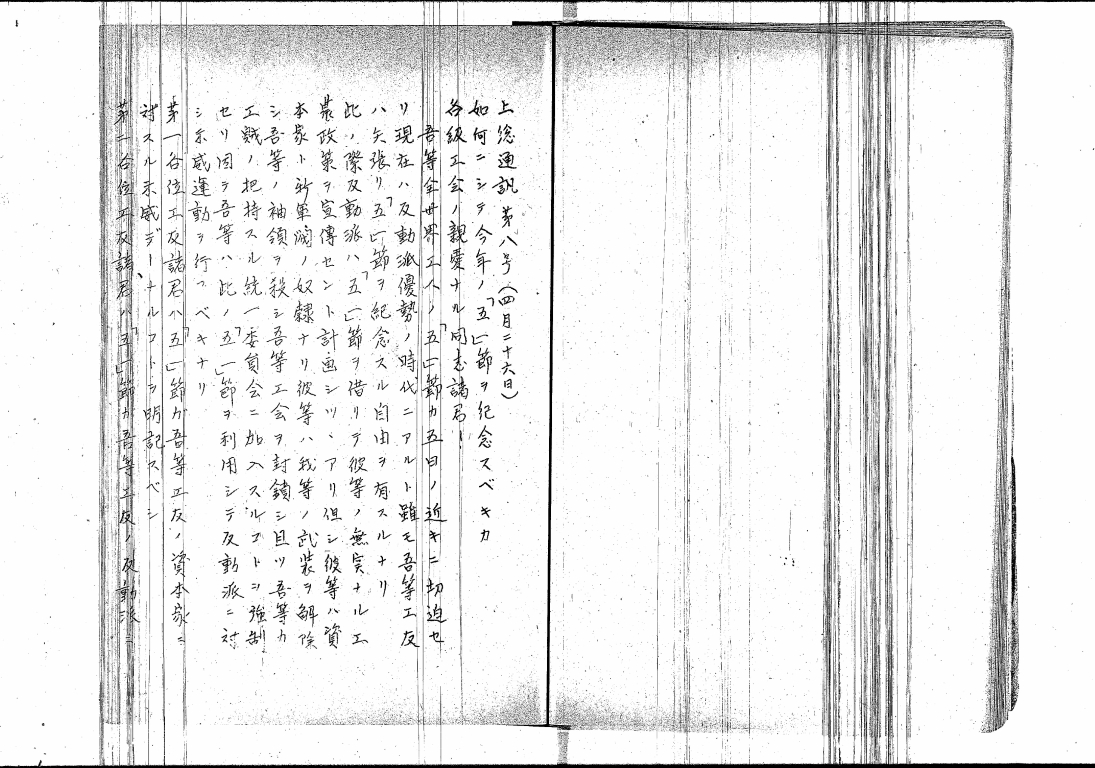 上総通訊 第八号(四月二十六日)
如何ニシテ今年ノ「五一」節ヲ紀念スベキカ
各級工会ノ親愛ナル同志諸君!
吾等全世界工人ノ「五一」節カ五日ノ近キニ切迫セ
リ現在ハ反動派優勢ノ時代ニアルト雖モ吾等工友
ハ矢張リ「五一」節ヲ紀念スル自由ヲ有スルナリ
此ノ際反動派ハ「五一」節ヲ借リテ彼等ノ無実ナル工
農政策ヲ宣傳セント計画シツヽアリ但シ彼等ハ資
本家ト新軍閥ノ奴隷ナリ彼等ハ我等ノ武装ヲ解除
シ吾等ノ袖領ヲ殺シ吾等工会ヲ封鎖シ且ツ吾等カ
工賊ノ把持スル統一委員会ニ加入スルコトヲ強制
セリ因テ吾等ハ此ノ「五一」節ヲ利用シテ反動派ニ対
シ示威運動ヲ行フベキナリ
第一各位工友諸君ハ「五一」節ガ吾等工友ノ資本家ニ
対スル示威デーナルコトヲ明記スベシ
第二各位工友諸君ハ「五一」節カ吾等工友ノ反動派ニ